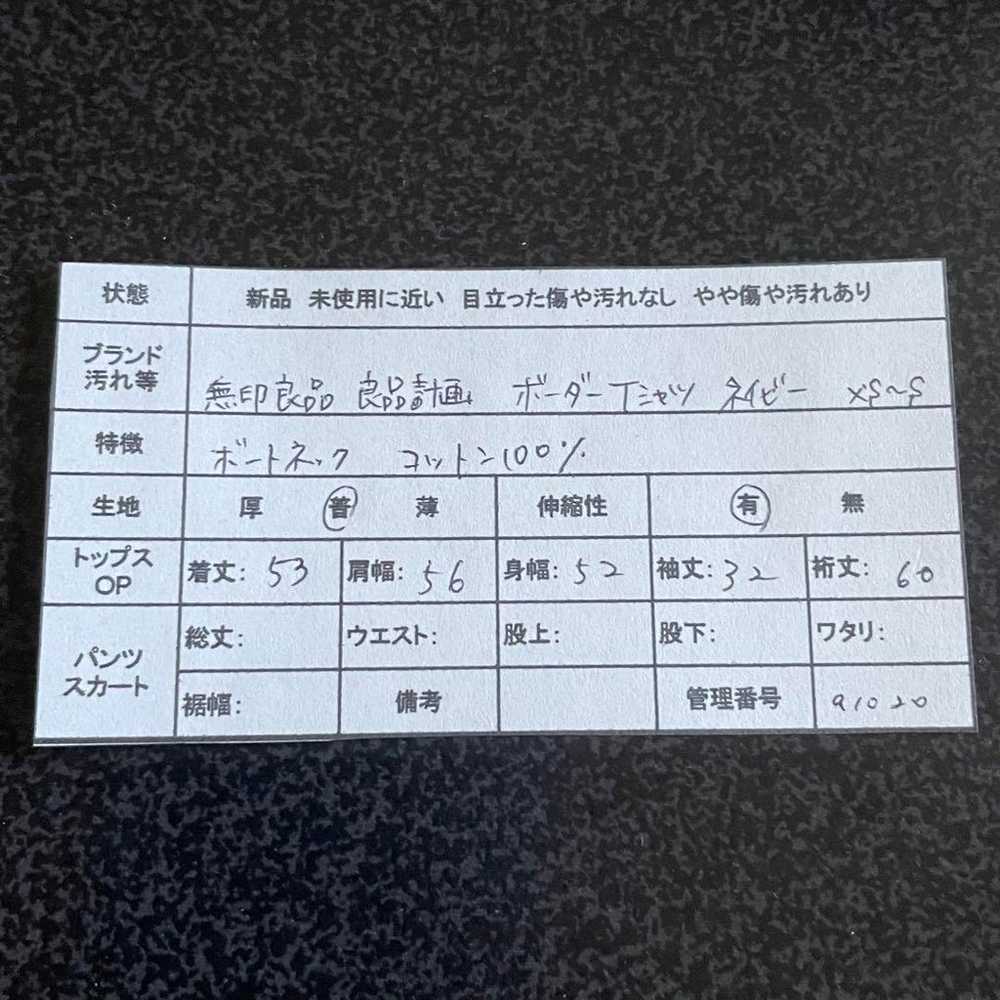 状態 新品 未使用に近い 目立った傷や汚れなし やや傷や汚れあり
ブランド
汚れ等 無印良品 良品計画 ボーダーTシャツ ネイビー XS〜S
特徴 ボートネック コットン100%
生地 厚 普 薄 伸縮性 有 無
トップス
OP 着丈: 53 肩幅: 56 身幅: 52 袖丈: 32 裄丈: 60
パンツ
スカート 総丈: ウエスト: 股上: 股下: ワタリ:
裾幅: 備考 管理番号 a1020